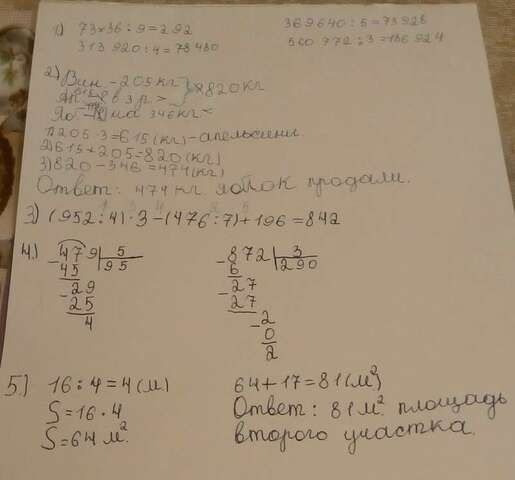 1) 73×36 : 9 = 292
369640 : 5 = 73928
313 920 : 4 = 78 480
560 772 : 3 = 186 924
2) Вин. - 205 кг
Ап. - в 3 р > 820 кг
Яб - на 346 кг <
1) 205 · 3 = 615 (кг) - апельсины.
2) 615 + 205 = 820 (кг)
3) 820 - 346 = 474 (кг)
Ответ: 474 кг яблок продали.
3) (952 : 4) · 3 - (476 : 7) + 196 = 842
4.) - 479 | 5
45 | 95
- 29
25
4
- 872 | 3
6 | 290
- 27
- 27
- 2
0
2
5) 16 : 4 = 4 (м)
S = 16 · 4
S = 64 м²
64 + 17 = 81 (м²)
Ответ: 81 м² площадь
второго участка.